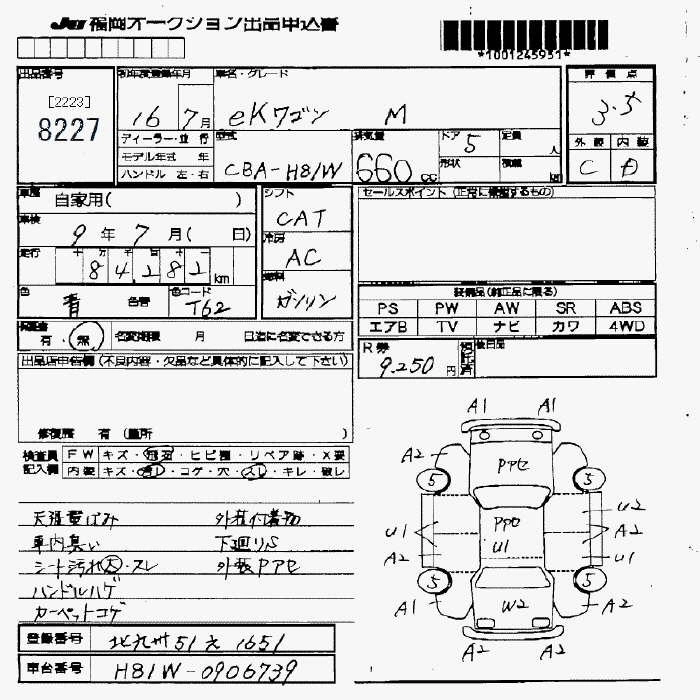 JAI 福岡オークション出品申込書
*1001245951*
出品番号 初年度登録年月 車名・グレード 評価点
[2223] 8227 16 7月 eKワゴン M 3.5
ディーラー・並行 型式 排気量 ドア 定員 外装 内装
モデル年式 年 CBA-H81W 660 cc 5 人 C D
ハンドル 左・右 形状 積載 kg
車歴 シフト セールスポイント (正常に機能するもの)
自家用( ) CAT
車検 冷房
9 年 7 月( 日) AC
走行 十 万 千 百 十 一 燃料
8 4 2 8 2 km ガソリン
色 青 色替 色コード T62
装備品(純正品に限る)
PS PW AW SR ABS
エアB TV ナビ カワ 4WD
保証書 有・無 名変期限 月 日迄に名変できる方
R券 9.250 円 預託済 後日品
出品店申告欄 (不良内容・欠品など具体的に記入して下さい)
修復歴 有 (箇所 )
検査員 FW キズ・飛石・ヒビ種・リペア跡・X要
記入欄 内装 キズ・汚れ・コゲ・穴・スレ・キレ・破レ
天張黄ばみ 外装付着物
車内臭い 下廻りS
シート汚れ大・スレ 外装PPセ
ハンドルハゲ
カーペットコゲ
登録番号 北九州51え1651
車台番号 H81W-0906739
A1 A1
A2 PPセ
5 5
U2
U1 PPセ A2
A2 U1 U1
5 5
A1 W2 A2
A2 A2